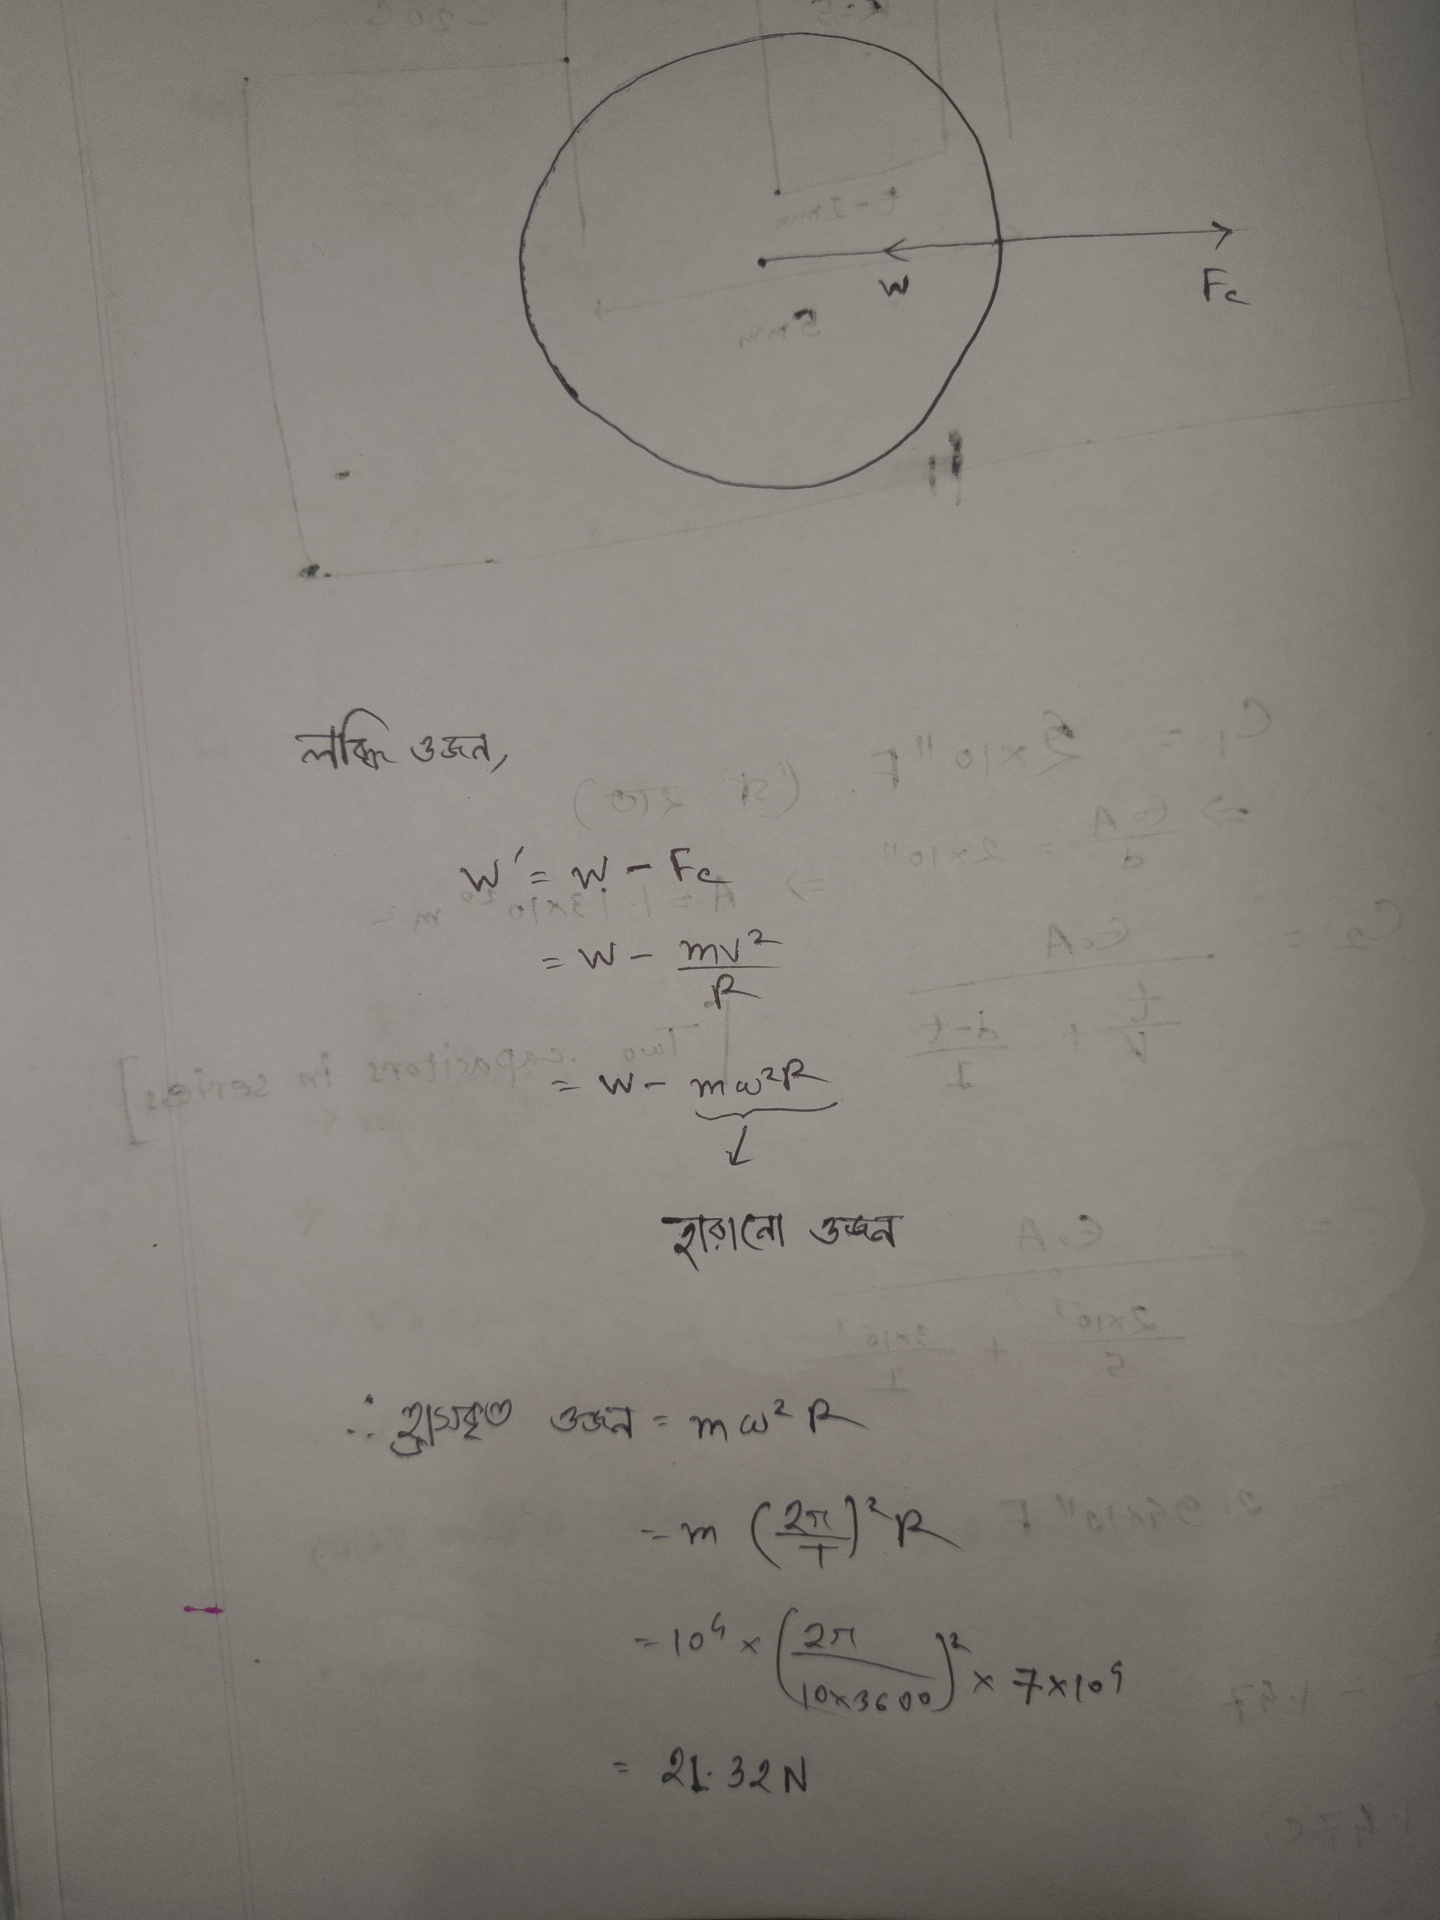 W
Fc
লব্ধি ওজন,
W' = W - Fc
= W - mv²/R
= W - mω²R
হারানো ওজন
∴ হ্রাসকৃত ওজন = mω²R
= m (2π/T)² R
= 10⁴ × (2π/10×3600)² × 7×10⁴
= 21.32N